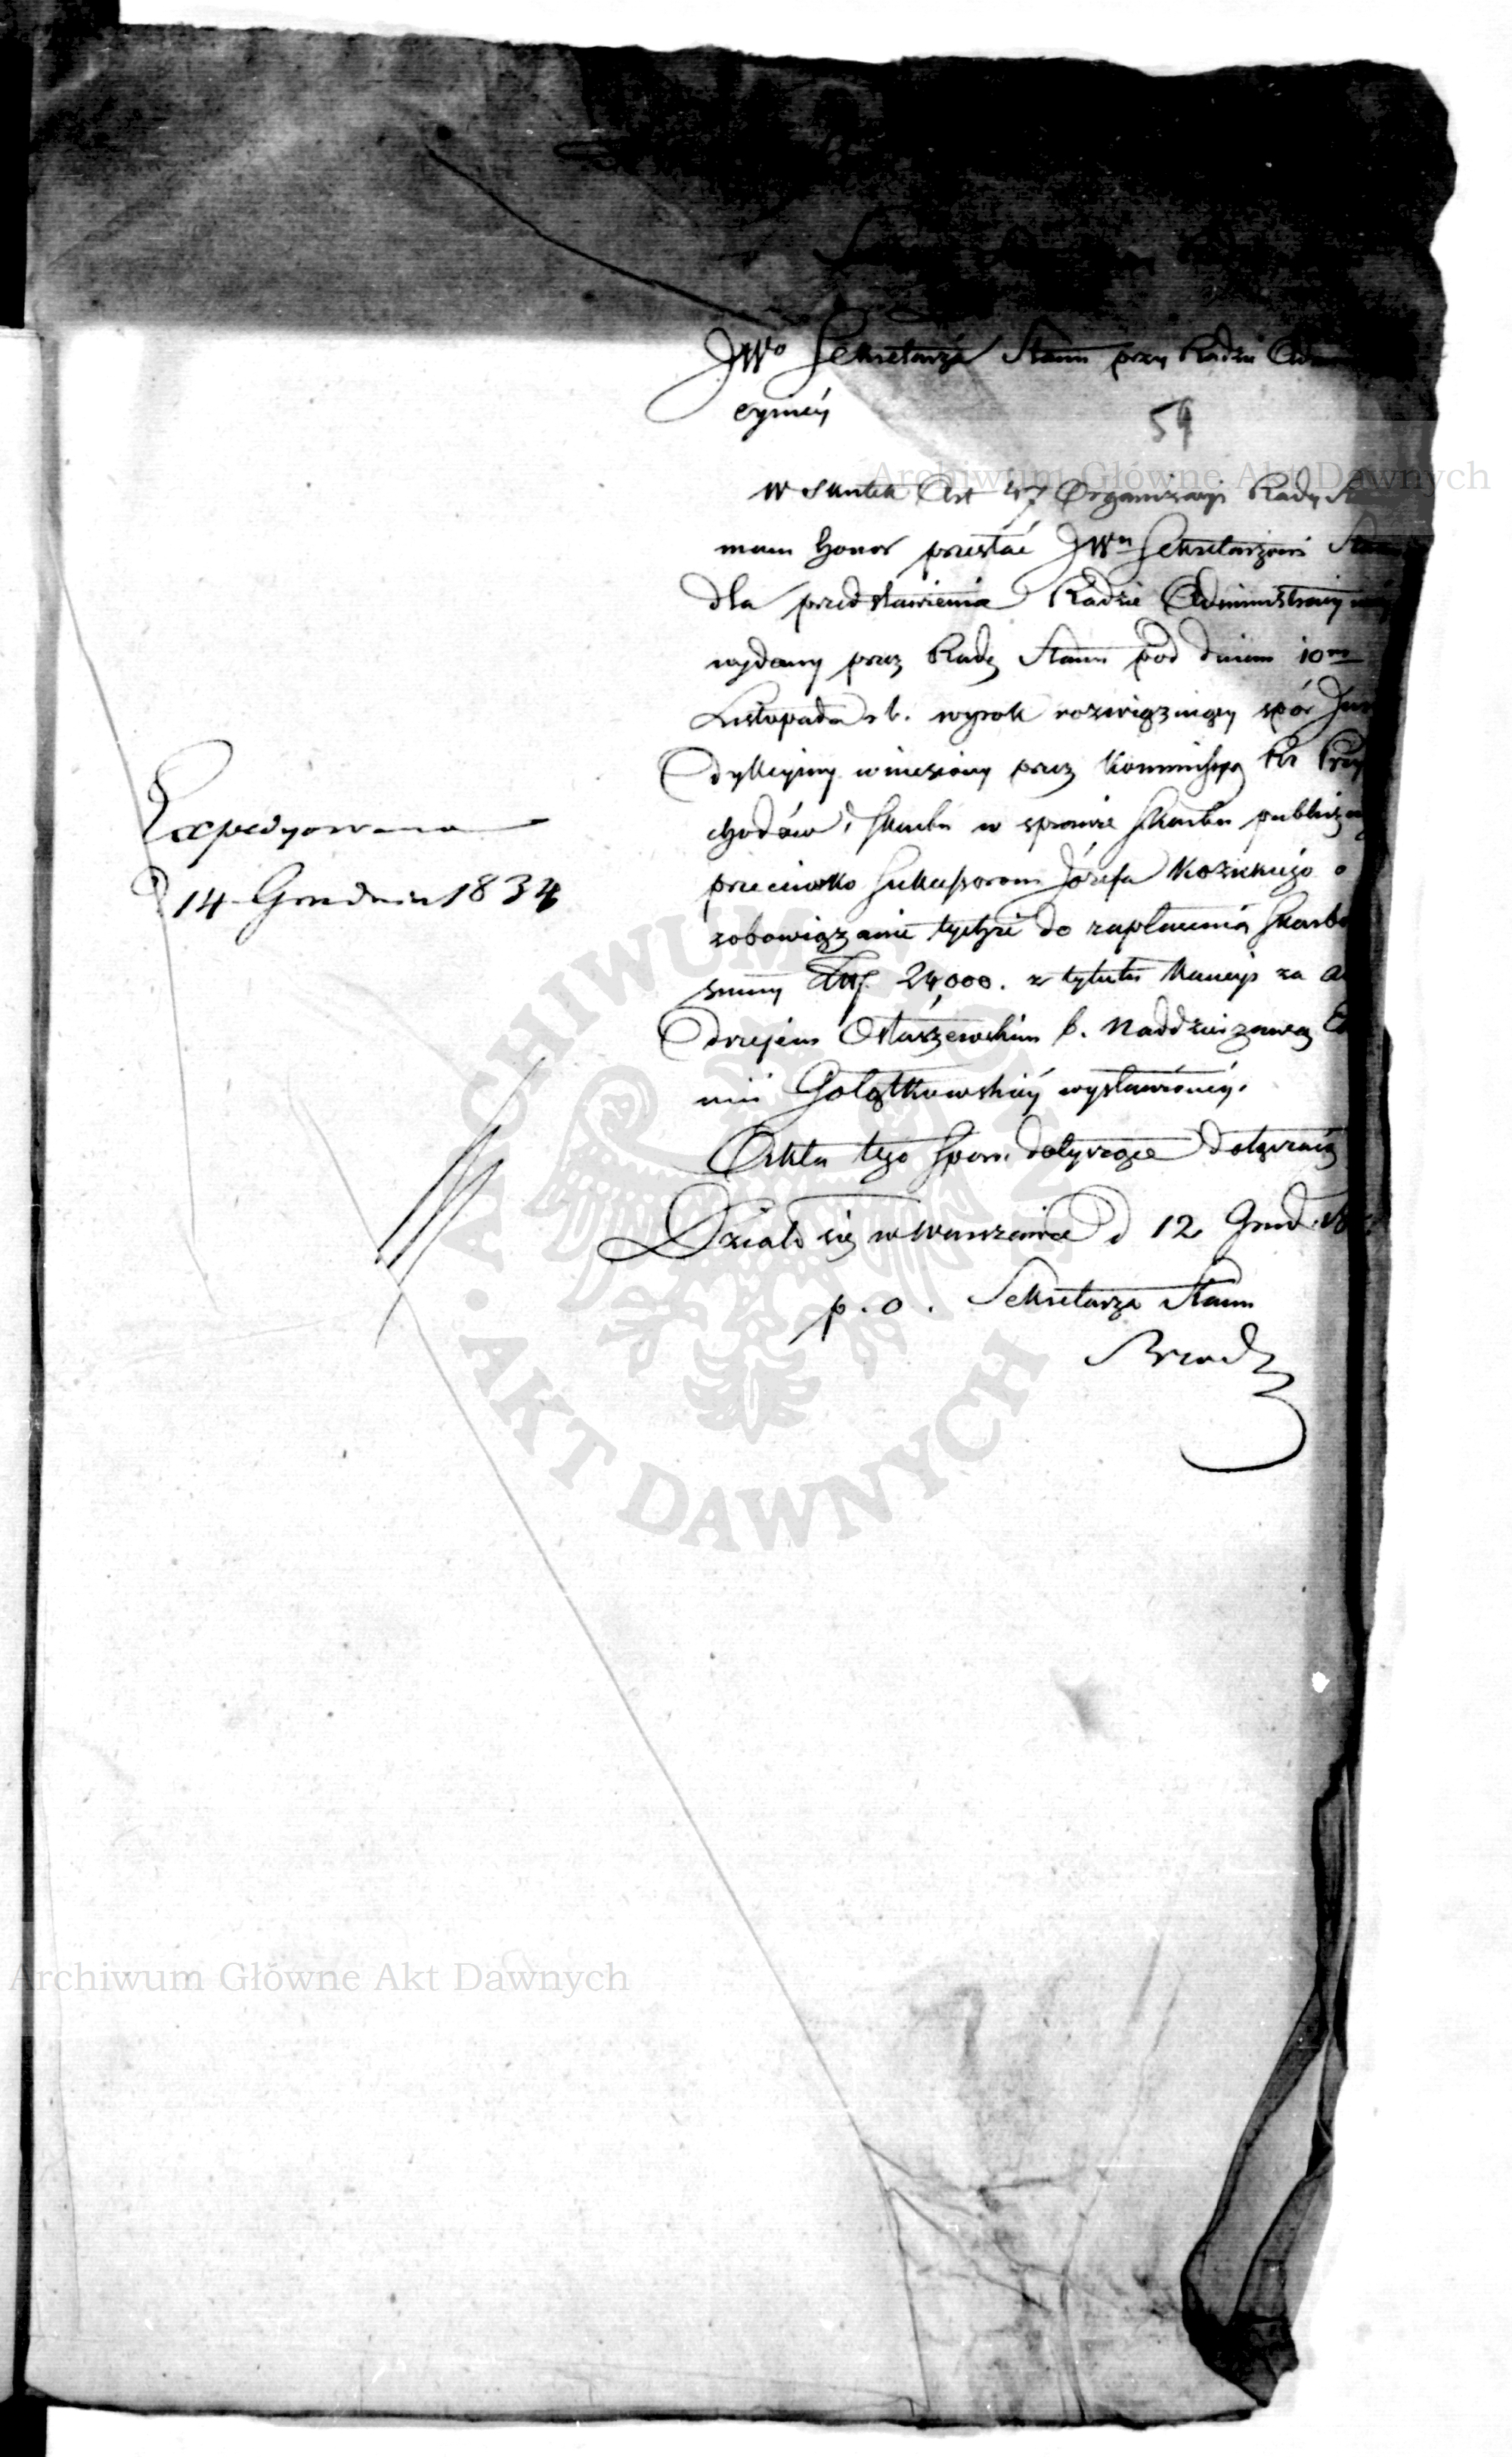 JWo Sekretarza Stanu przy Radzie Adm
cyjnéy
54
W skutek Art 47 Organizacyi Rady St
mam honor przesłać JWu Sekretarzowi Stanu
dla przedstawienia Radzie Administracyjnéj
wydany przez Radę Stanu pod dniem 10m
Listopada r. b. wyrok rozwiązujący spór Jur
dykcyjny wniesiony przez Kommissyą Rz Przy
chodów i Skarbu w sprawie Skarbu publiczn
przeciwko Sukcessorom Józefa Kozickiego o
zobowiązanie tychże do zapłacenia Skarbo
summy Złp. 24,000. z tytułu Kaucyi za A
drzejem Ostaszewskim b. Naddzierżawcą Eko
mii Gołątkowskiéy wystawionéy.
Akta tego sporu dotyczące dołączaią
Działo się w Warszawie d 12 Grud. 18
p. o. Sekretarza Stanu
Expedyowano
D 14 Grudnia 1834
Archiwum Główne Akt Dawnych
Archiwum Główne Akt Dawnych
ARCHIWUM GŁÓWNE AKT DAWNYCH